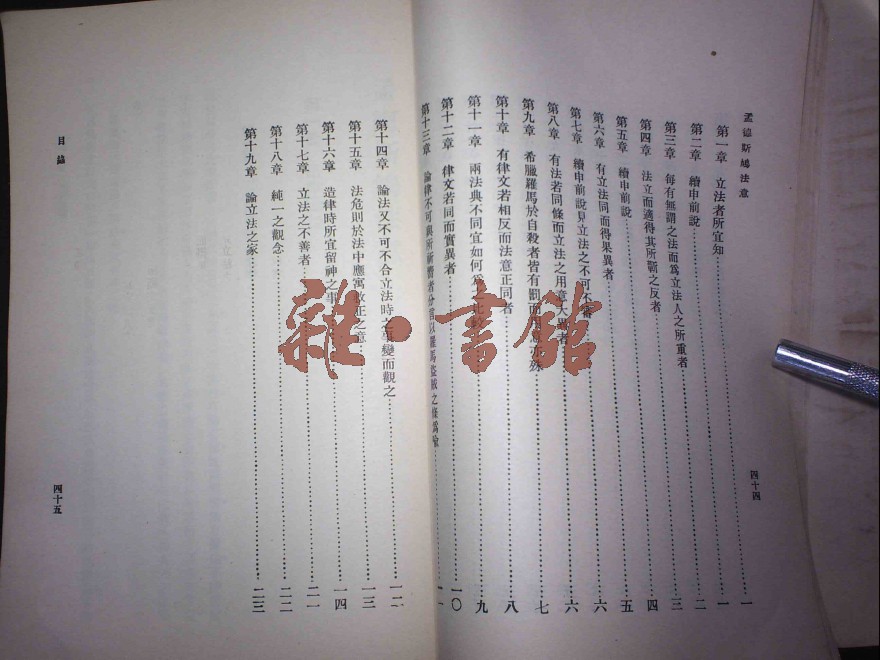 孟德斯鳩法意
第一章 立法者所宜知 一
第二章 續申前說 二
第三章 每有無謂之法而為立法人之所重者 三
第四章 法立而適得其所蘄之反者 四
第五章 續申前說 五
第六章 有立法同而得果異者 六
第七章 續申前說見立法之不可不 六
第八章 有法若同條而立法之用意大 者 七
第九章 希臘羅馬於自殺者皆有罰而 殊 七
第十章 有律文若相反而法意正同者 八
第十一章 兩法典不同宜如何為之比較 九
第十二章 律文若同而實異者 一〇
四十四
第十三章 論律不可與所蘄嚮者分 以羅馬盜賊之條為喻 一一
第十四章 論法又不可不合立法時之事變而觀之 一二
第十五章 法危則於法中應寓改正之意 一三
第十六章 造律時所宜留神之事 一四
第十七章 立法之不善者 二一
第十八章 純一之觀念 二二
第十九章 論立法之家 二三
目錄
四十五
雜·書館